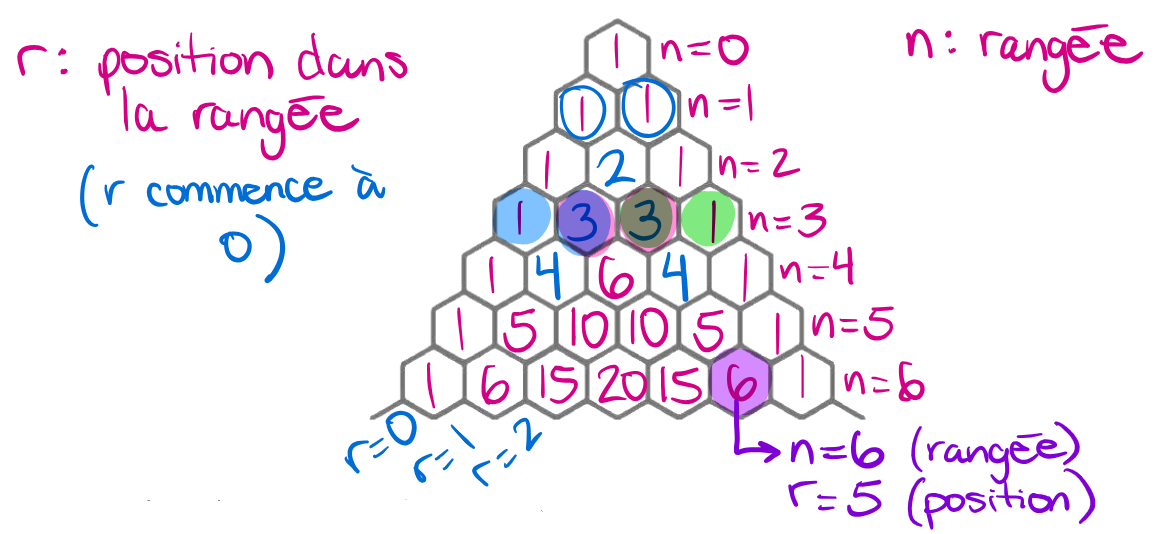 r: position dans
la rangée
(r commence à
0)
n: rangée
1 n=0
1 1 n=1
1 2 1 n=2
1 3 3 1 n=3
1 4 6 4 1 n=4
1 5 10 10 5 1 n=5
1 6 15 20 15 6 1 n=6
r=0 r=1 r=2
n=6 (rangée)
r=5 (position)